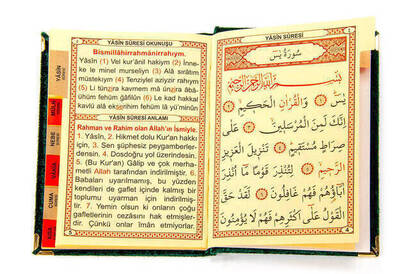 YÂSİN SÛRESİ OKUNUŞU
Bismillâhirrahmânirrahıym.
(1) Yâsîn (2) Vel kur'ânil hakiym (2) İnne-
ke le minel murseliyn (3) Alâ sırâtım
müstekıym (4) Tenziylel aziyzir rahıym
(5) Li tünzira kavmem mâ ünzira âbâ-
ühüm fehüm ğâfilûn (6) Le kad hakkal
kavlü alâ ekserihim fehüm lâ yü'minûn
YÂSİN SÛRESİ ANLAMI
Rahman ve Rahim olan Allah'ın İsmiyle.
1. Yâsîn, 2. Hikmet dolu Kur'an hakkı
için, 3. Sen şüphesiz peygamberler-
densin. 4. Dosdoğru yol üzerindesin.
5. (Bu Kur'an) Gâlip ve çok merha-
metli Allah tarafından indirilmiştir. 6.
Babaları uyarılmamış, bu yüzden
kendileri de gaflet içinde kalmış bir
toplumu uyarman için indirilmiş-
tir. 7. Yemin olsun ki onların çoğu
gafletlerinin cezasını hak etmişler-
dir. Çünkü onlar îman etmiyorlar.
YÂSİN
MÜLK
NEBE
CUMA
YÂSİN SÛRESİ
سُورَةُ يٰسٓ
بِسْمِ اللّٰهِ الرَّحْمٰنِ الرَّحِيمِ
يٰسٓ ﴿١﴾ وَالْقُرْاٰنِ الْحَكِيمِ ﴿٢﴾
اِنَّكَ لَمِنَ الْمُرْسَلِينَ ﴿٣﴾ عَلٰى
صِرَاطٍ مُسْتَقِيمٍ ﴿٤﴾ تَنْزِيلَ الْعَزِيزِ
الرَّحِيمِ ﴿٥﴾ لِتُنْذِرَ قَوْمًا مَٓا اُنْذِرَ
اٰبَٓاؤُهُمْ فَهُمْ غَافِلُونَ ﴿٦﴾ لَقَدْ حَقَّ
الْقَوْلُ عَلٰٓى اَكْثَرِهِمْ فَهُمْ لَا يُؤْمِنُونَ